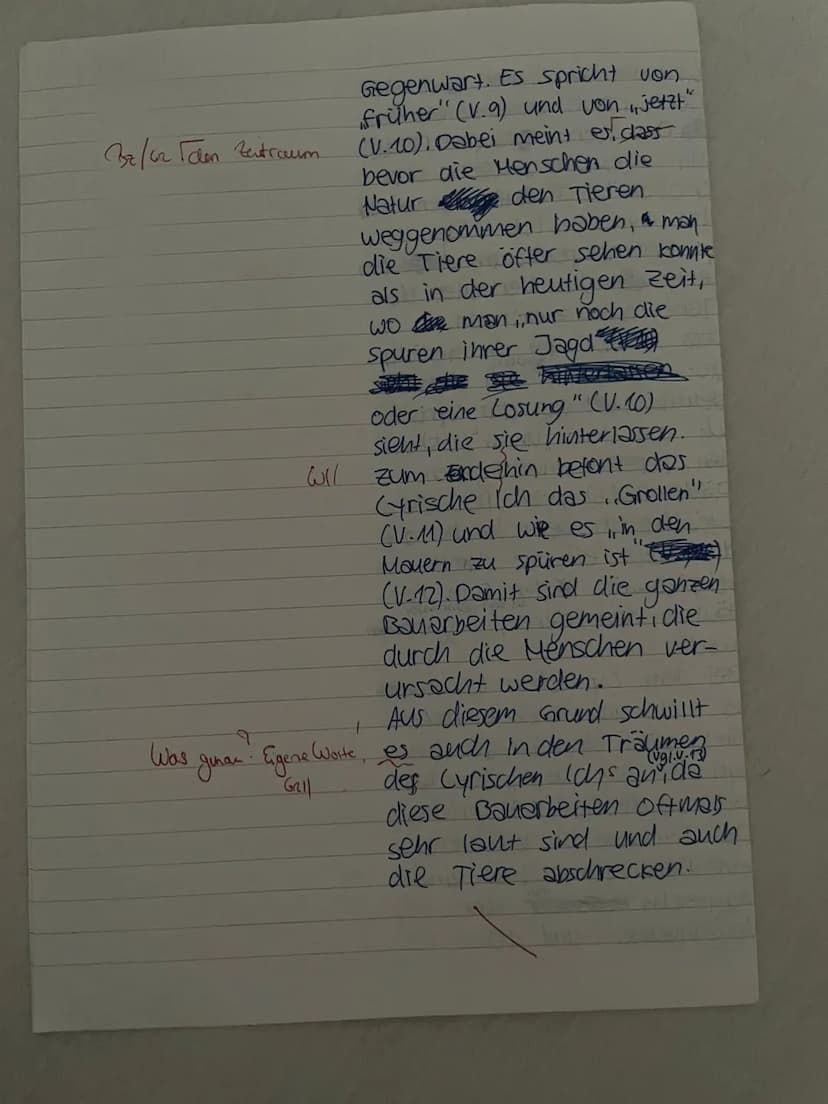 Gegenwart. Es spricht von
„früher“ (V.9) und von „jetzt“
Bz/Gz ⌈den Zeitraum
(V.10). Dabei meint es,⌈dass
bevor die Menschen die
Natur den Tieren
weggenommen haben, man
die Tiere öfter sehen konnte
als in der heutigen Zeit,
wo man „nur noch die
spuren ihrer Jagd
oder eine Losung“ (V.10)
sieht, die sie hinterlassen.
W//
zum Endehin betont das
Lyrische Ich das „Grollen“
(V.11) und wie es „in den
Mauern zu spüren ist“
(V.12). Damit sind die ganzen
Bauarbeiten gemeint, die
durch die Menschen ver-
ursacht werden.
Aus diesem Grund schwillt
Was genau? Eigene Worte,
es auch in den Träumen
(vgl. V.13)
Gr//
des Lyrischen Ichs an, da
diese Bauarbeiten oftmals
sehr laut sind und auch
die Tiere abschrecken.